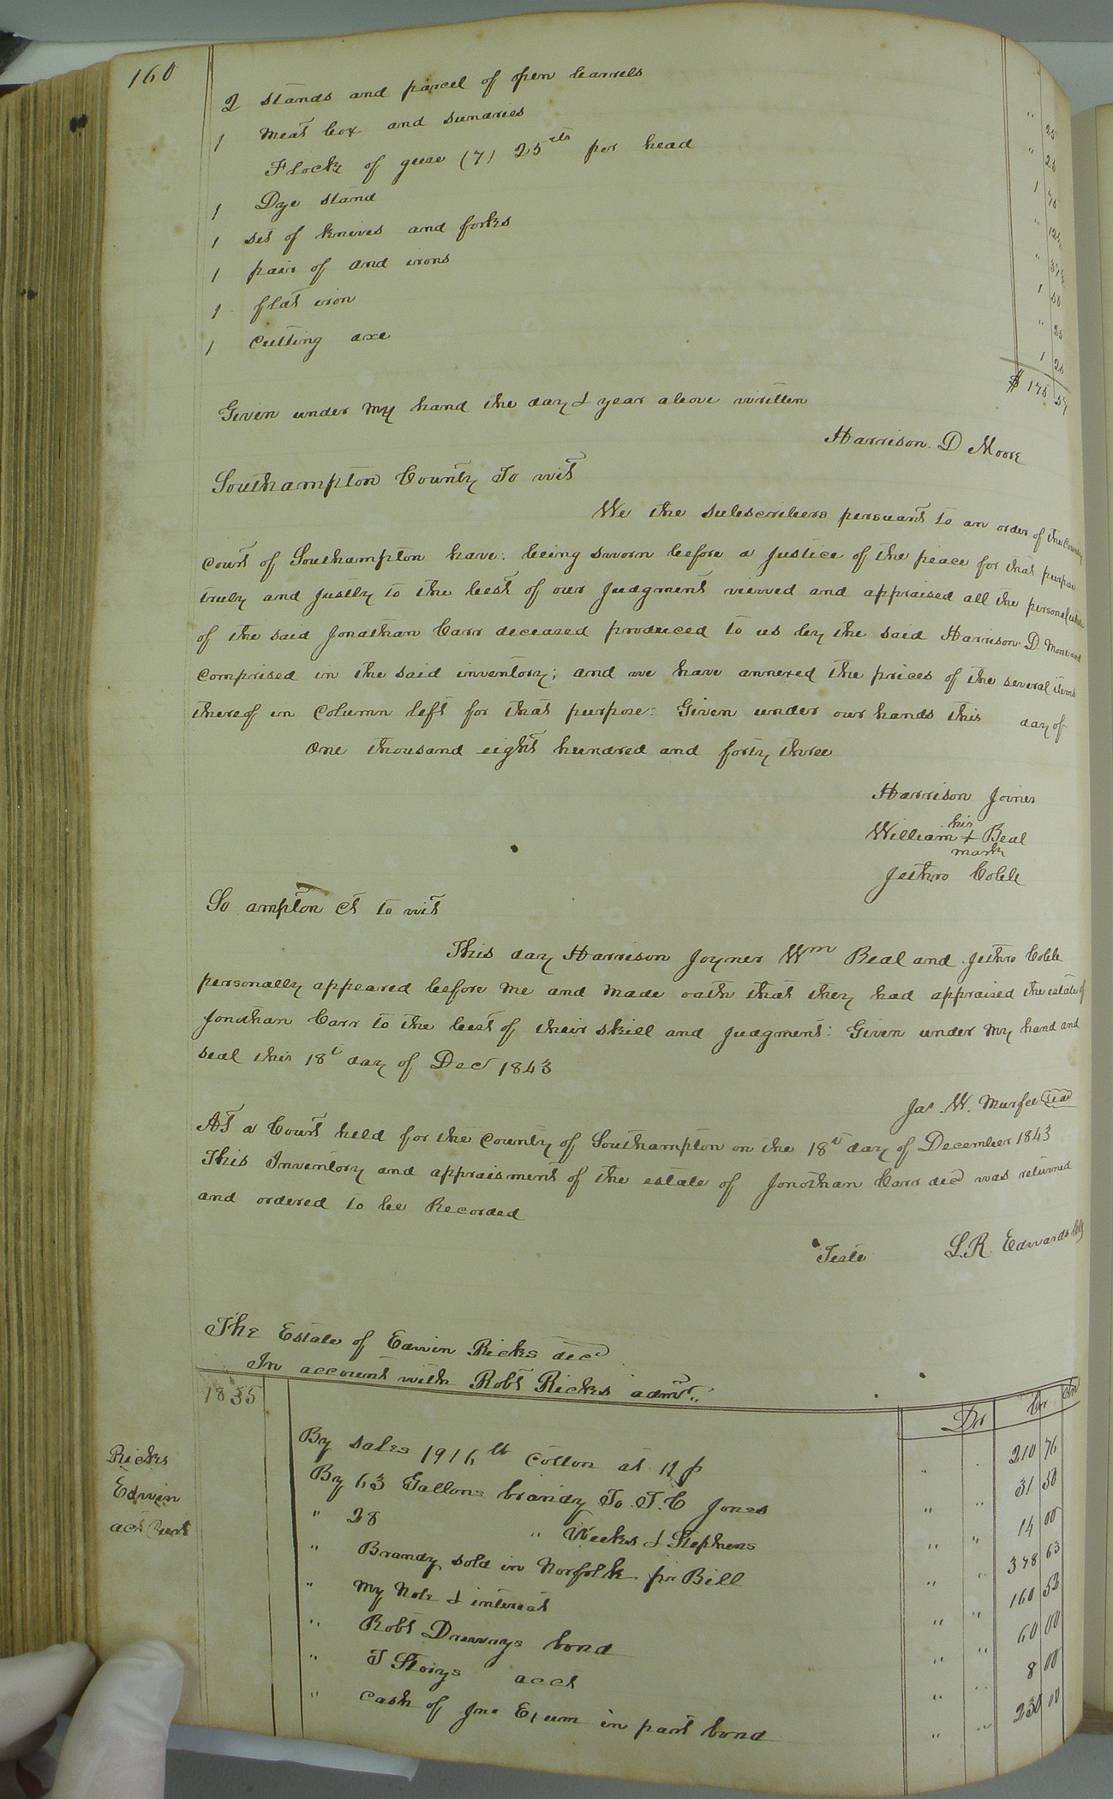 160
2 stands and parcel of open barrels " 25
1 Meat box and sundries " 25
Flock of geese (7) 25 cts per head 1 75
1 Dye stand " 12½
1 set of knives and forks " 37½
1 pair of And irons 1 50
1 flat iron " 25
1 Cutting axe 1 25
$ 175
Given under my hand the day & year above written
Harrison D Moore
Southampton County To wit
We the subscribers persuant to an order of the County
Court of Southampton have: being sworn before a Justice of the peace for that purpose
truly and justly to the best of our Judgment viewed and appraised all the personal estate
of the said Jonathan Carr deceased produced to us by the said Harrison D. Moore and
comprised in the said inventory; and we have annexed the prices of the several items
thereof in Column left for that purpose: Given under our hands this day of
One thousand eight hundred and forty three
Harrison Joiner
his
William + Beal
mark
Jethro Cobb
So ampton Ct to wit
This day Harrison Joyner Wm Beal and Jethro Cobb
personally appeared before me and made oath that they had appraised the estate of
Jonathan Carr to the best of their skill and Judgment: Given under my hand and
seal this 18t day of Decr 1843
Jas W. Murfee seal
At a Court held for the County of Southampton on the 18t day of December 1843
This Inventory and appraisment of the estate of Jonathan Carr decd was returned
and ordered to be Recorded
Teste L.R. Edwards Clk
The Estate of Edwin Ricks decd
In account with Robt Ricks admr.
1835 Dr Cr
Ricks
Edwin
act Curt
By sales 1916 lb Cotton at 11 p " " 210 76
By 63 Gallons brandy To T. C Jones " " 31 50
" 28 " Weeks & Stephens " " 14 00
" Brandy sold in Norfolk pr Bill " " 378 63
" My Note & interest " " 160 53
" Robt Drewrys bond " " 60 00
" T Storys acct " " 8 00
" Cash of Jno Exum in part bond " " 230 00